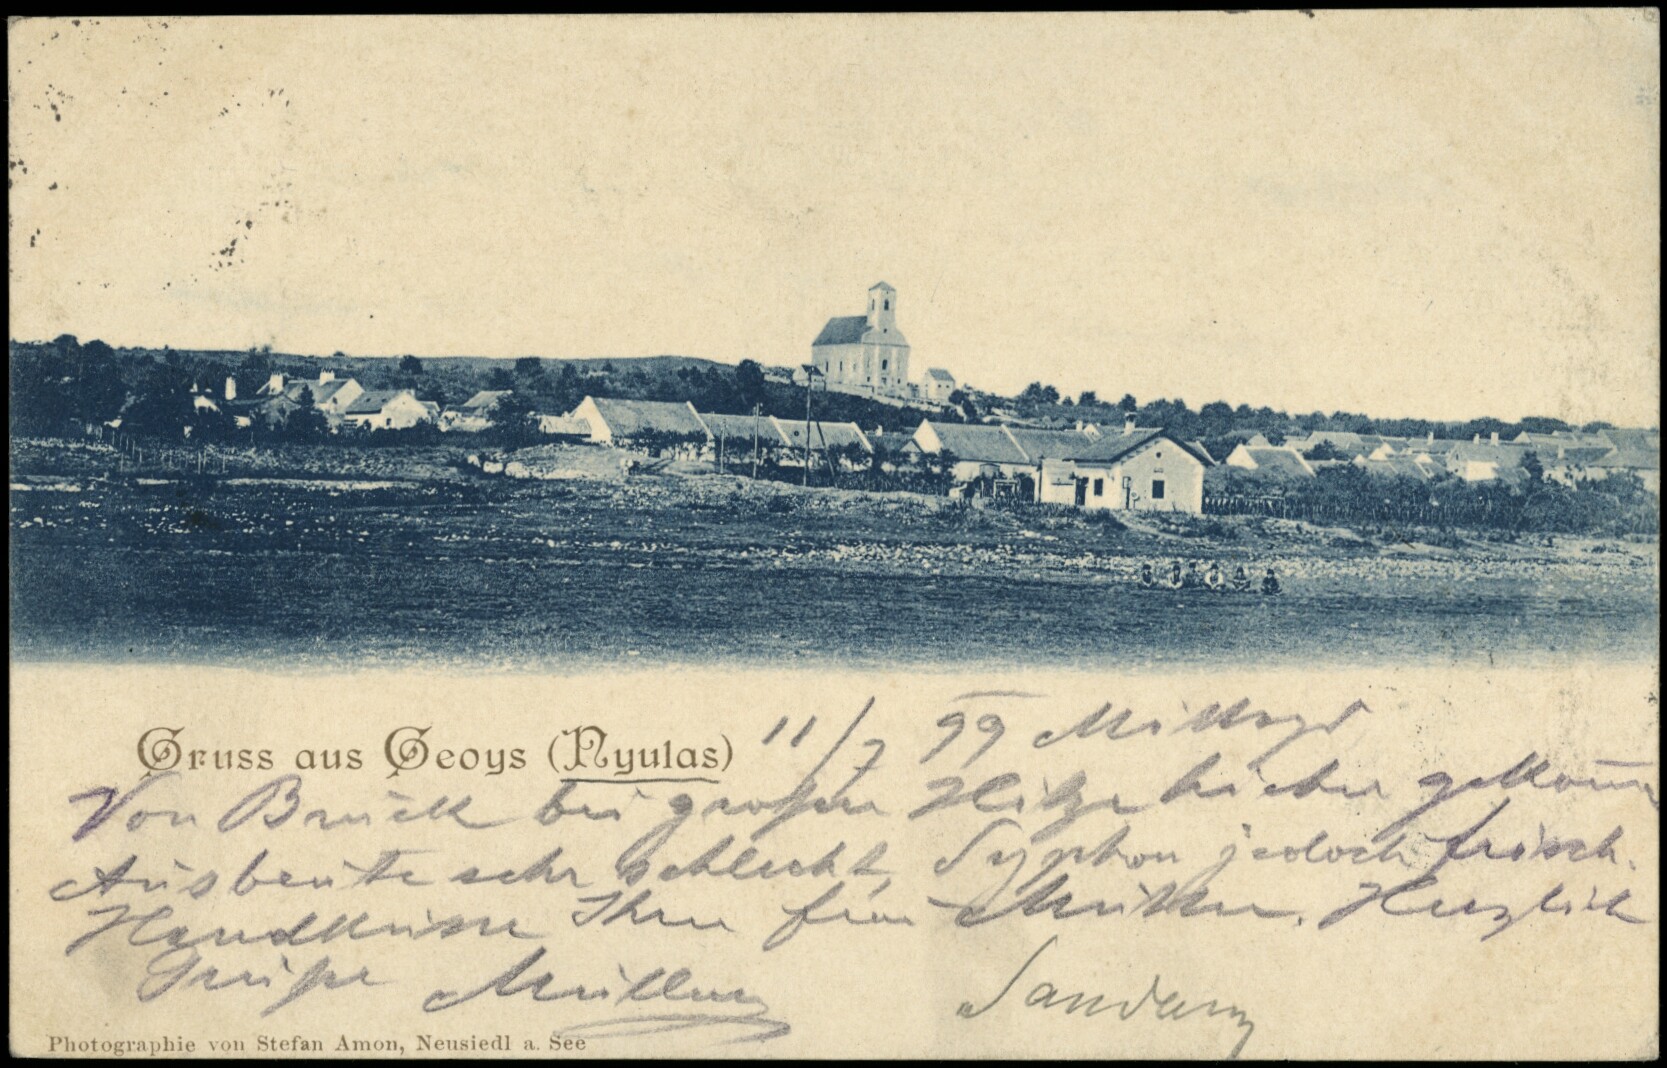 Gruss aus Geoys (Nyulas) 11/7 99 Mittags
Von Bruck bei großer Hitze hieher gekommen
Ausbeute sehr schlecht, Syphon jedoch frisch.
Handküsse Ihrer Frau Mutter. Herzlich
Grüße Müller
Sandany
Photographie von Stefan Amon, Neusiedl a. See